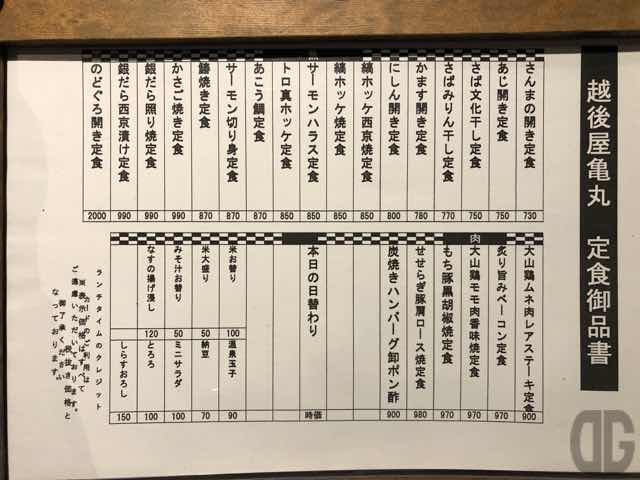 越後屋亀丸 定食御品書
さんまの開き定食 730
あじ開き定食 750
さば文化干し定食 750
さばみりん干し定食 770
かます開き定食 780
にしん開き定食 800
縞ホッケ西京焼定食 850
縞ホッケ焼定食 850
サーモンハラス定食 850
トロ真ホッケ定食 850
あこう鯛定食 870
サーモン切り身定食 870
鯖焼き定食 870
かさご焼き定食 990
銀だら照り焼定食 990
銀だら西京漬け定食 990
のどぐろ開き定食 2000
肉
大山鶏ムネ肉レアステーキ定食 900
炙り旨みベーコン定食 970
大山鶏モモ肉香味焼定食 970
もち豚黒胡椒焼定食 970
せせらぎ豚肩ロース焼定食 980
炭焼きハンバーグ卸ポン酢 900
本日の日替わり 時価
米お替り 100
米大盛り 50
みそ汁お替り 50
なすの揚げ浸し 120
温泉玉子 90
納豆 70
ミニサラダ 100
とろろ 100
しらすおろし 150
ランチタイムのクレジット
カードのご利用は
ご遠慮いただいております。
※表示価格はすべて
税抜き価格と
なっております。
御了承ください
DG